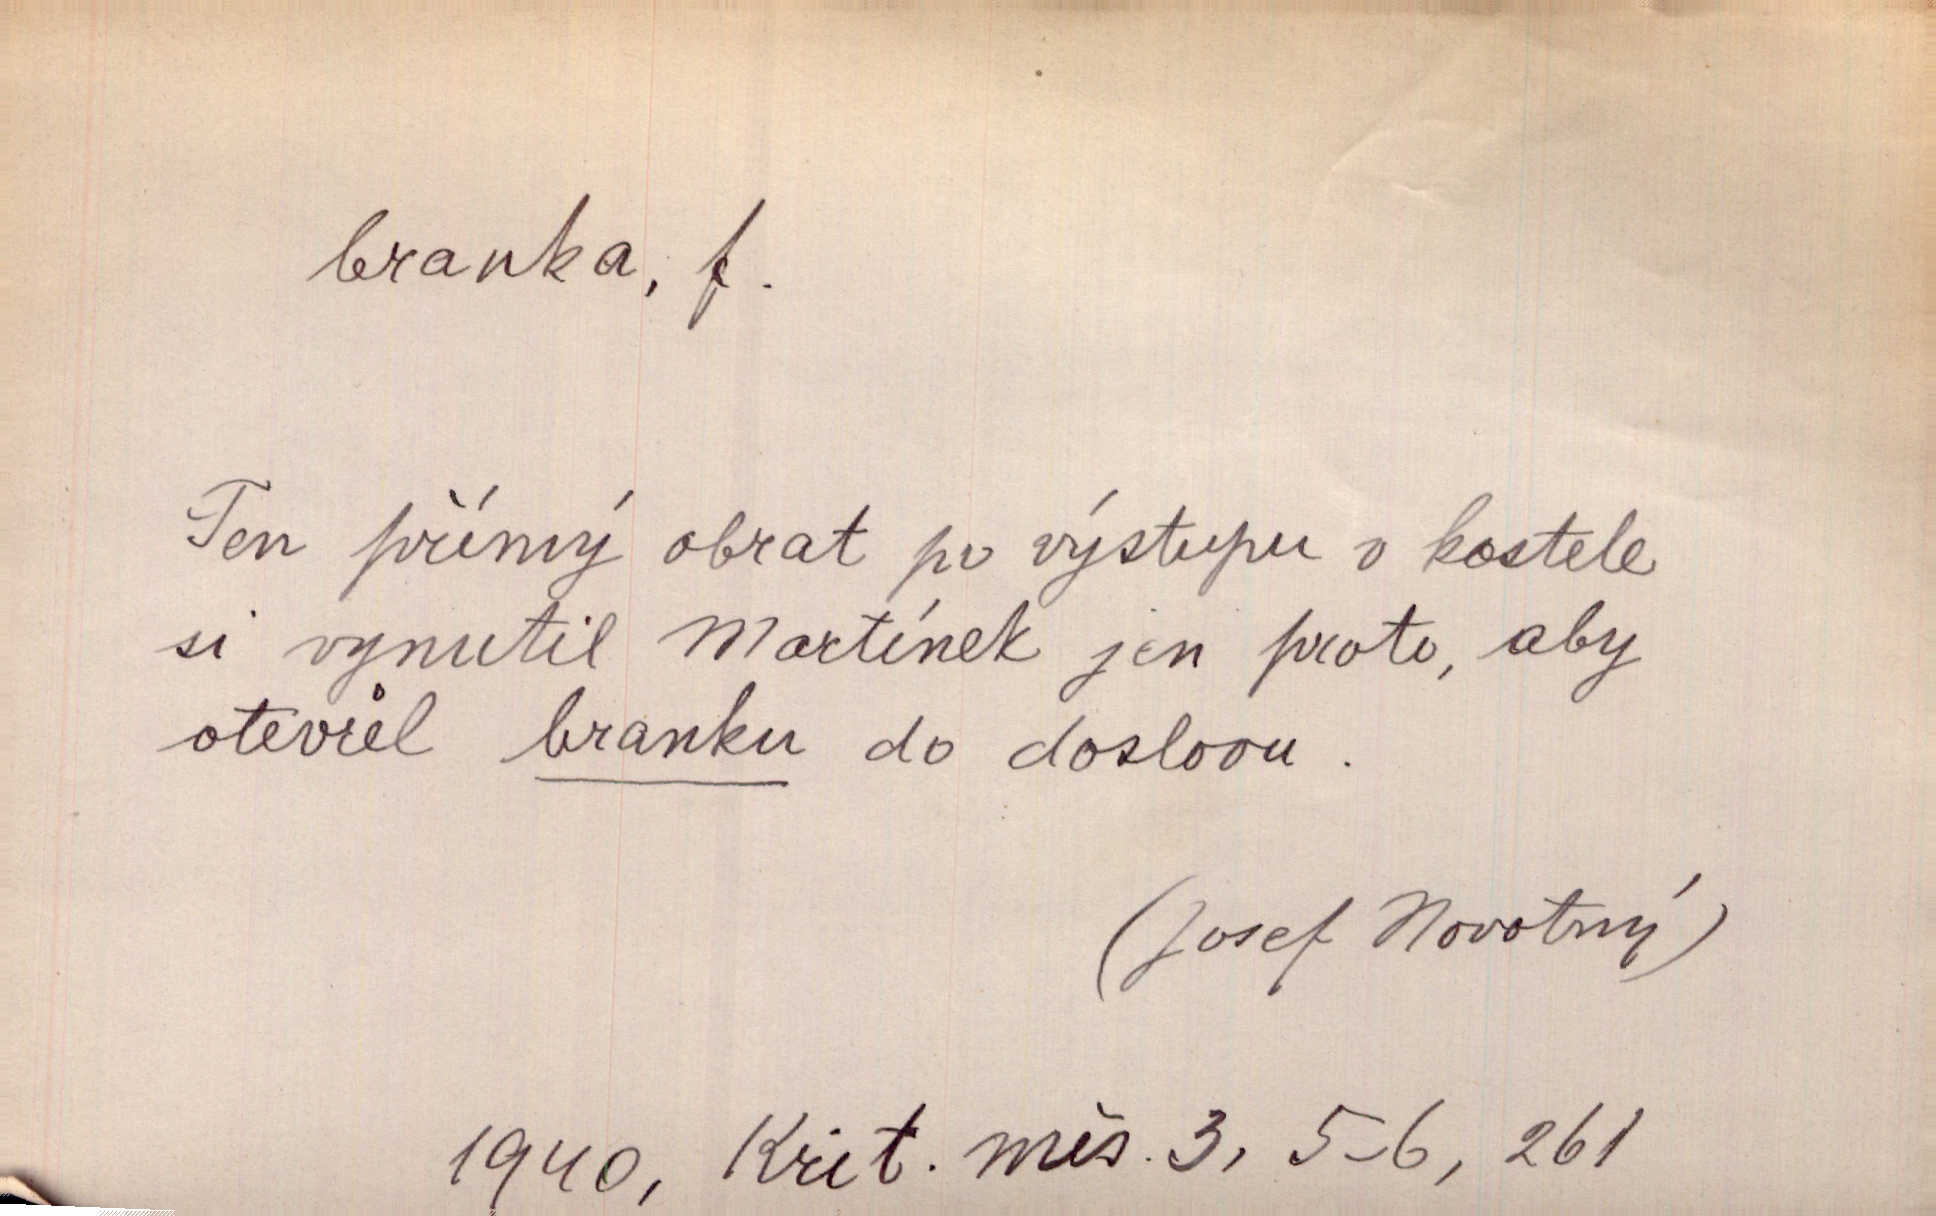 branka, f.
Ten přímý obrat po výstupu v kostele
si vynutil Martínek jen proto, aby
otevřel branku do doslovu.
(Josef Novotný)
1940, Krit. měs. 3, 5-6, 261